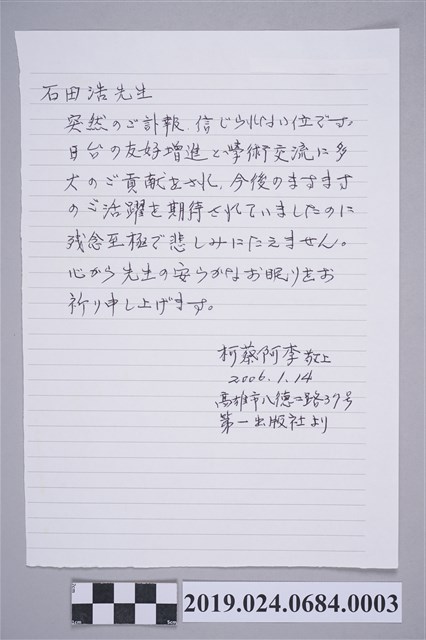 石田浩先生
突然のご訃報、信じられない位です。
日台の友好増進と學術交流に多
大のご貢献をされ、今後のますます
のご活躍を期待されていましたのに
残念至極で悲しみにたえません。
心から先生の安らかなお眠りをお
祈り申し上げます。
柯蔡阿李敬上
2006.1.14
高雄市八徳二路37号
第一出版社より
2019.024.0684.0003